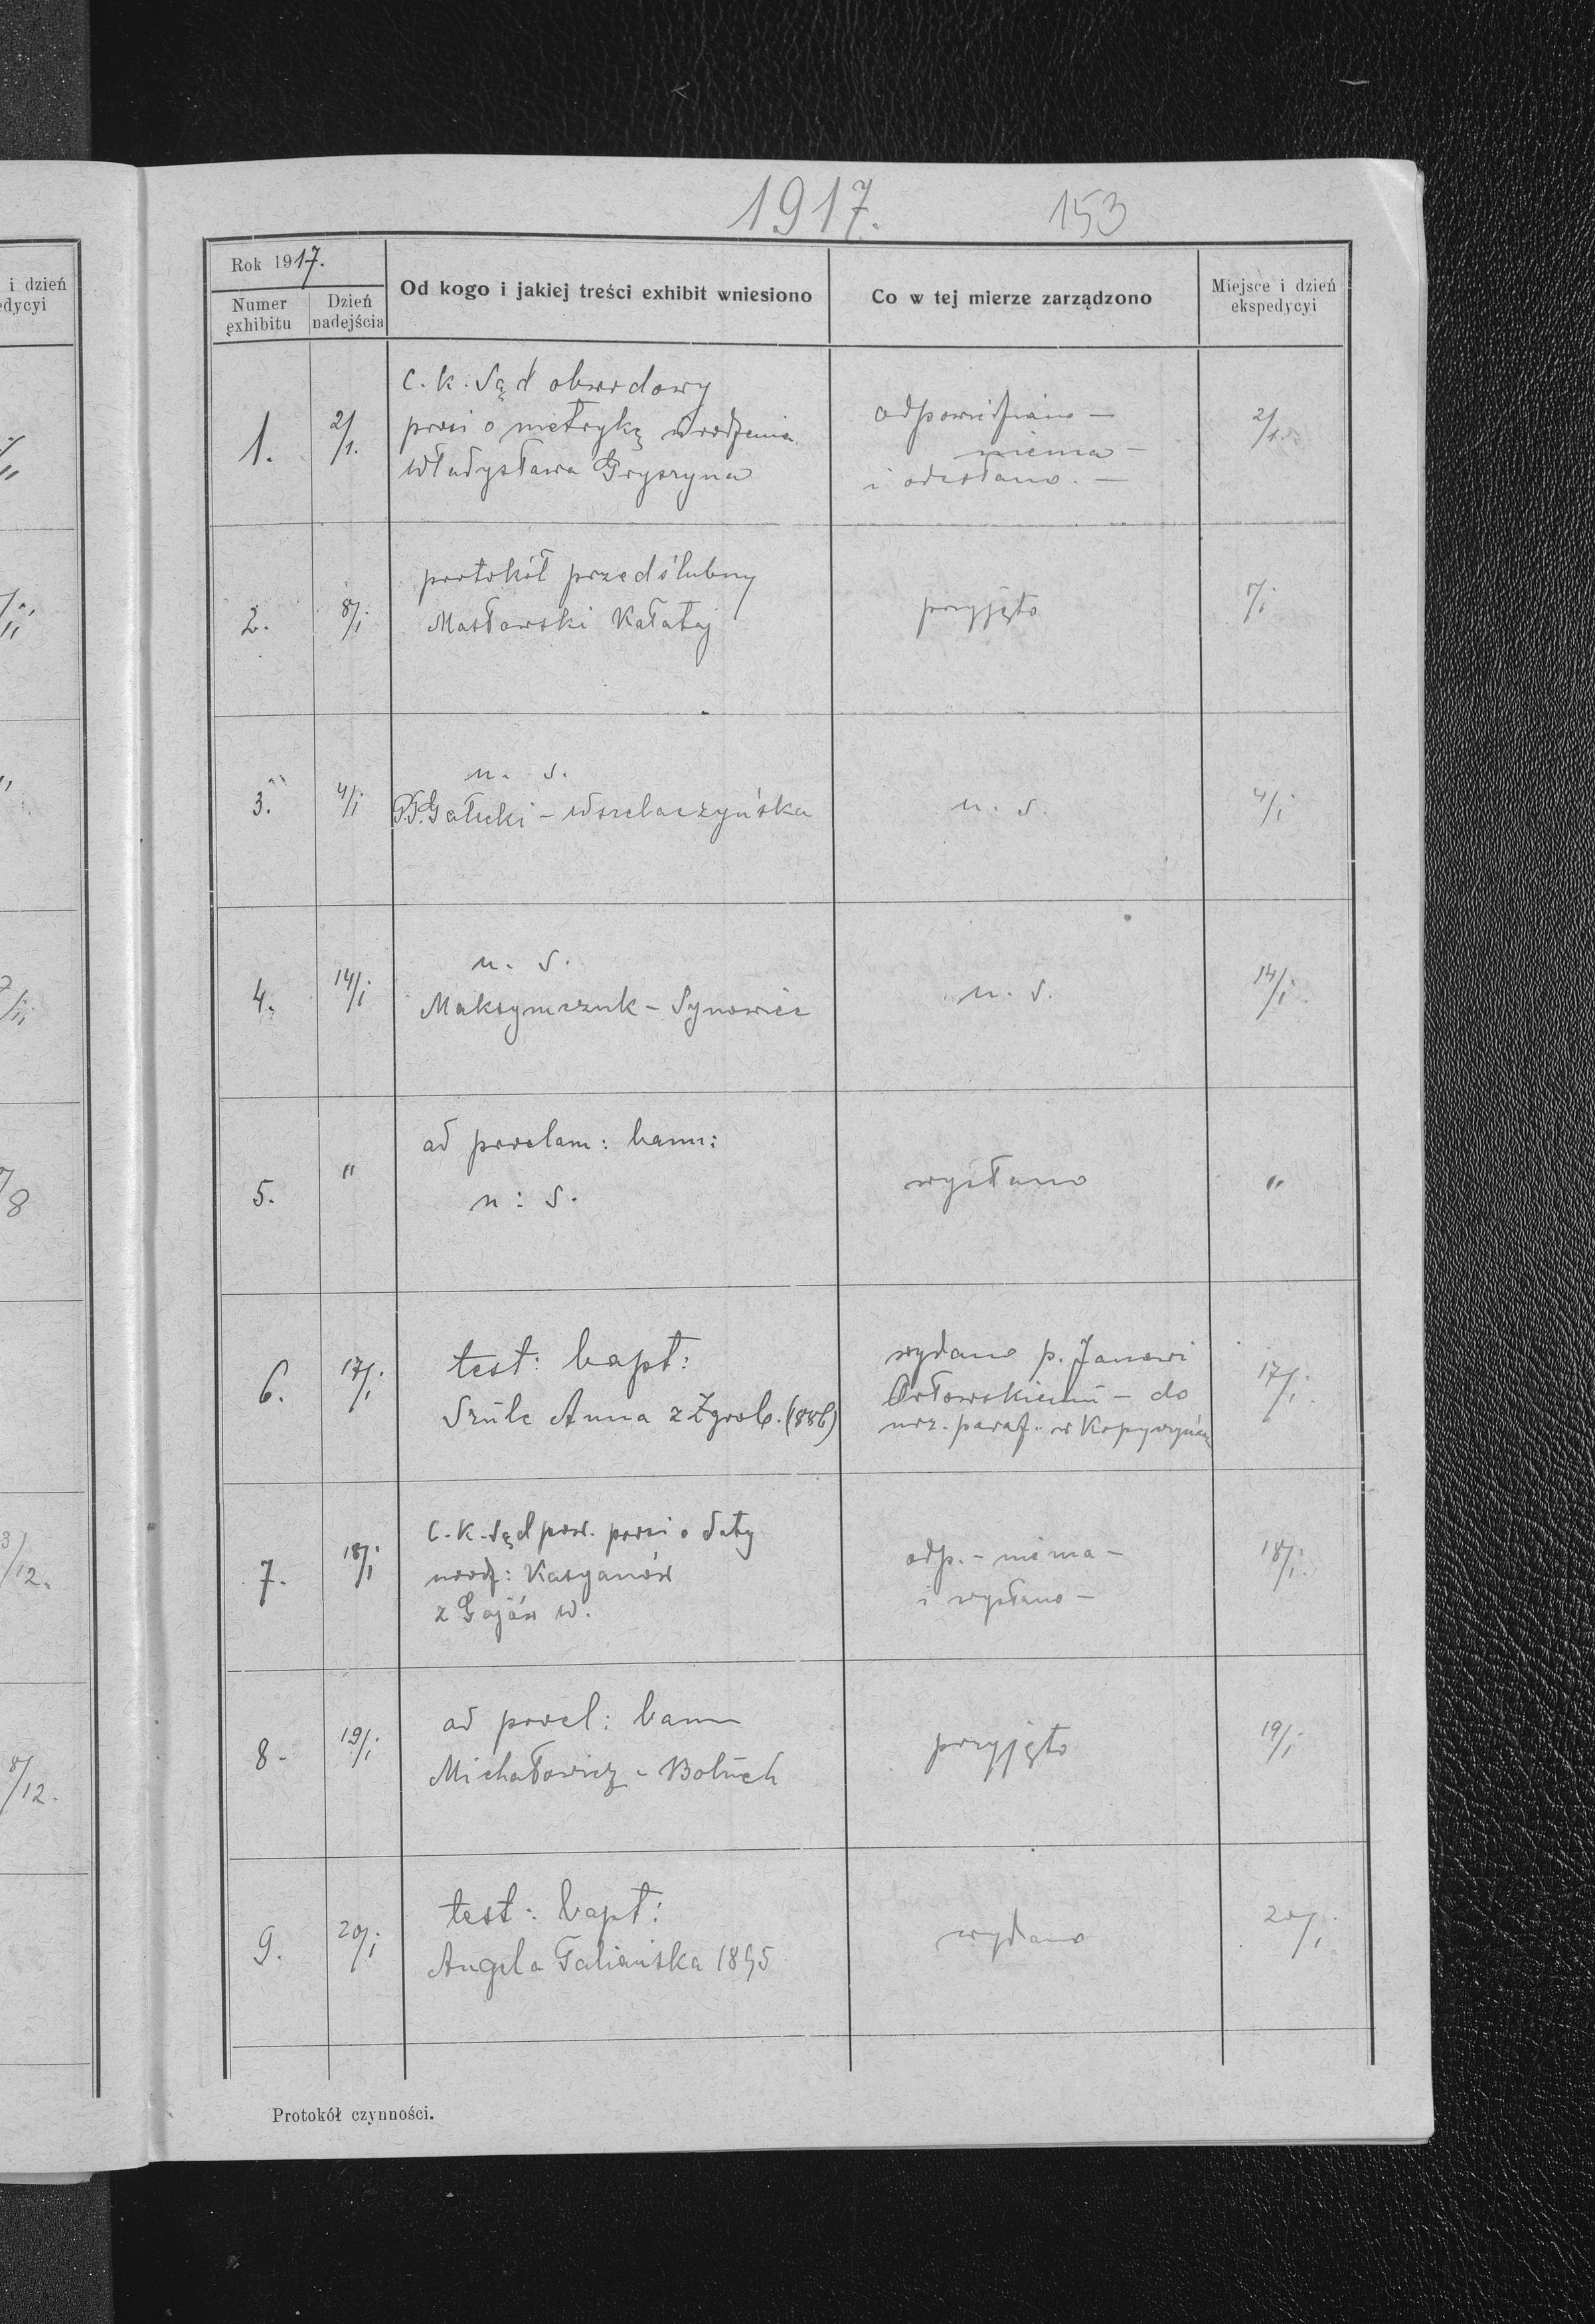 1917.
153
Rok 1917.
Numer exhibitu
Dzień nadejścia
Od kogo i jakiej treści exhibit wniesiono
Co w tej mierze zarządzono
Miejsce i dzień ekspedycyi
i dzień
edycyi
1.
2/1.
c. k. Sąd obwodowy
prosi o metrykę urodzenia
Władysława Gryszyna
odpowiedziano —
niema —
i odesłano. —
2/1.
2.
8/I
protokół przedślubny
Masłowski Kałataj
przyjęto
3.
4/I
n. s.
Gałucki – Wszelaczyńska
n. s.
4/I
4.
14/I
n. s.
Maksymczuk – Synowiec
n. s.
14/I
5.
"
ad proclam: bann:
n: s.
wysłano
"
6.
17/I
test: bapt:
Szulc Anna z Zgrob. (886)
wydano p. Janowi
Orłowskiemu – do
urz. paraf. w Kopyczyńc
17/I
7.
18/I
C. K. Sąd pow. prosi o daty
urodz: Kasyanów
z Gajów W.
odp. – niema –
i wysłano –
18/I.
8.
19/I
ad procl: bann
Michałowicz – Boluch
przyjęto
19/I
9.
20/I
test: bapt:
Angela Taliańska 1895
wydano
20/I
Protokół czynności.
3/12.
8/12.